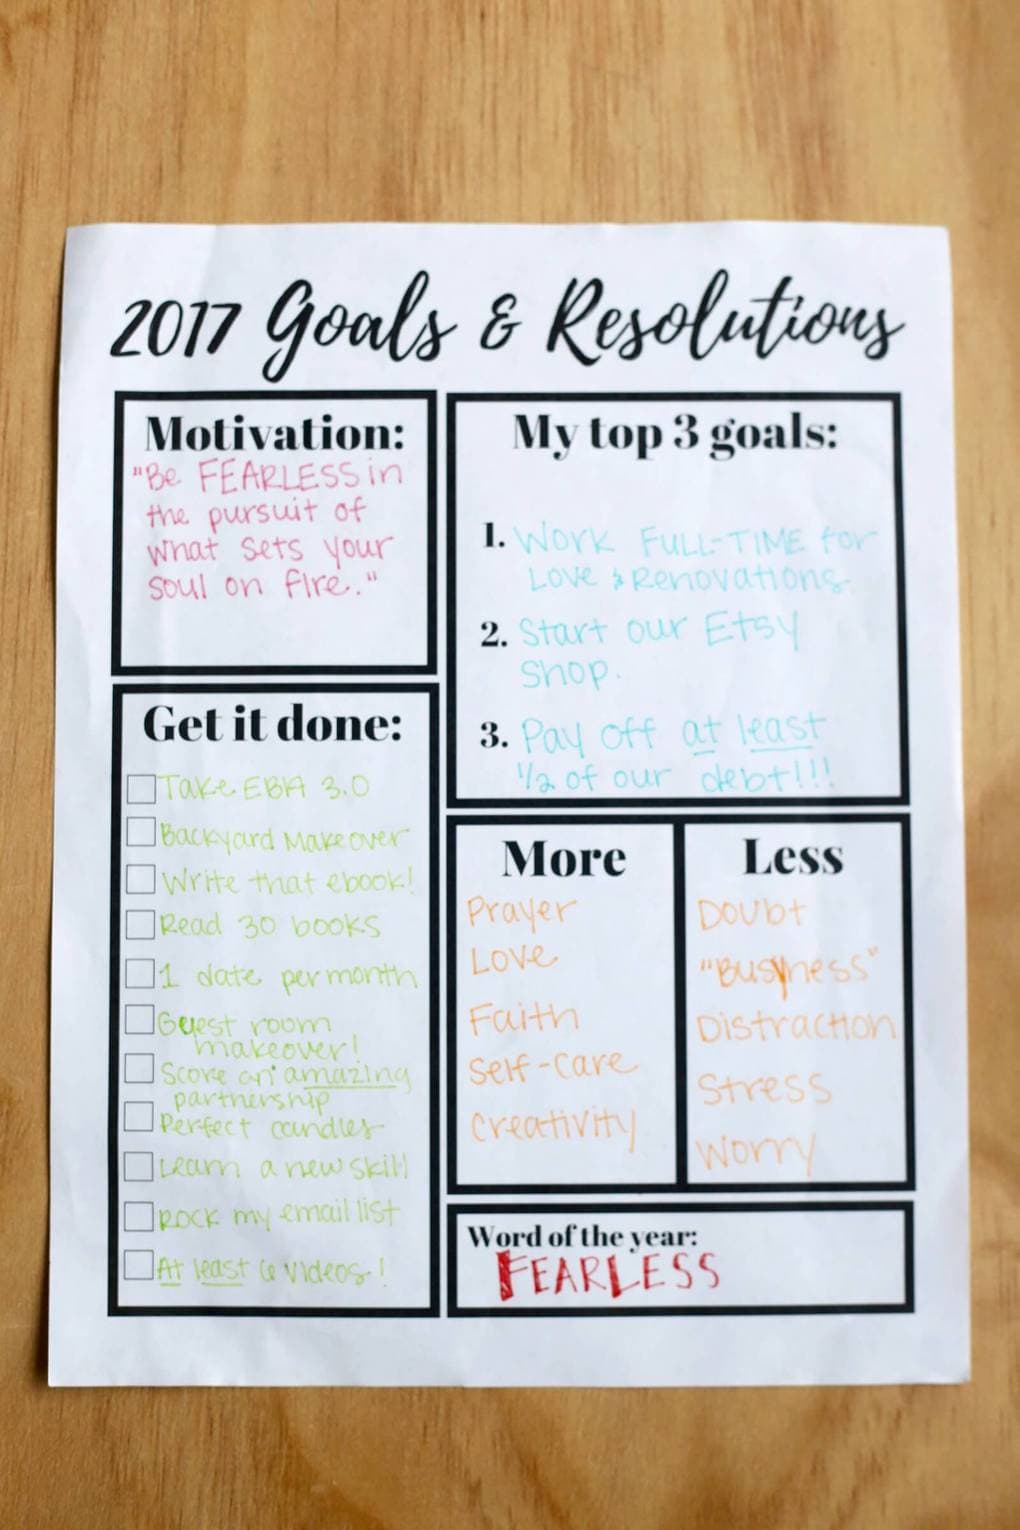 2017 Goals & Resolutions
Motivation:
"Be FEARLESS in
the pursuit of
what sets your
soul on fire."
My top 3 goals:
1. Work FULL-TIME for
Love & Renovations.
2. Start our Etsy
shop.
3. Pay off at least
1/2 of our debt!!!
Get it done:
Take EBA 3.0
Backyard Makeover
Write that ebook!
Read 30 books
1 date per month
Guest room
makeover!
Score an amazing
partnership
Perfect candles
Learn a new skill
Rock my email list
At least 6 videos!
More
Prayer
Love
Faith
Self-care
Creativity
Less
Doubt
"Busyness"
Distraction
Stress
Worry
Word of the year:
FEARLESS